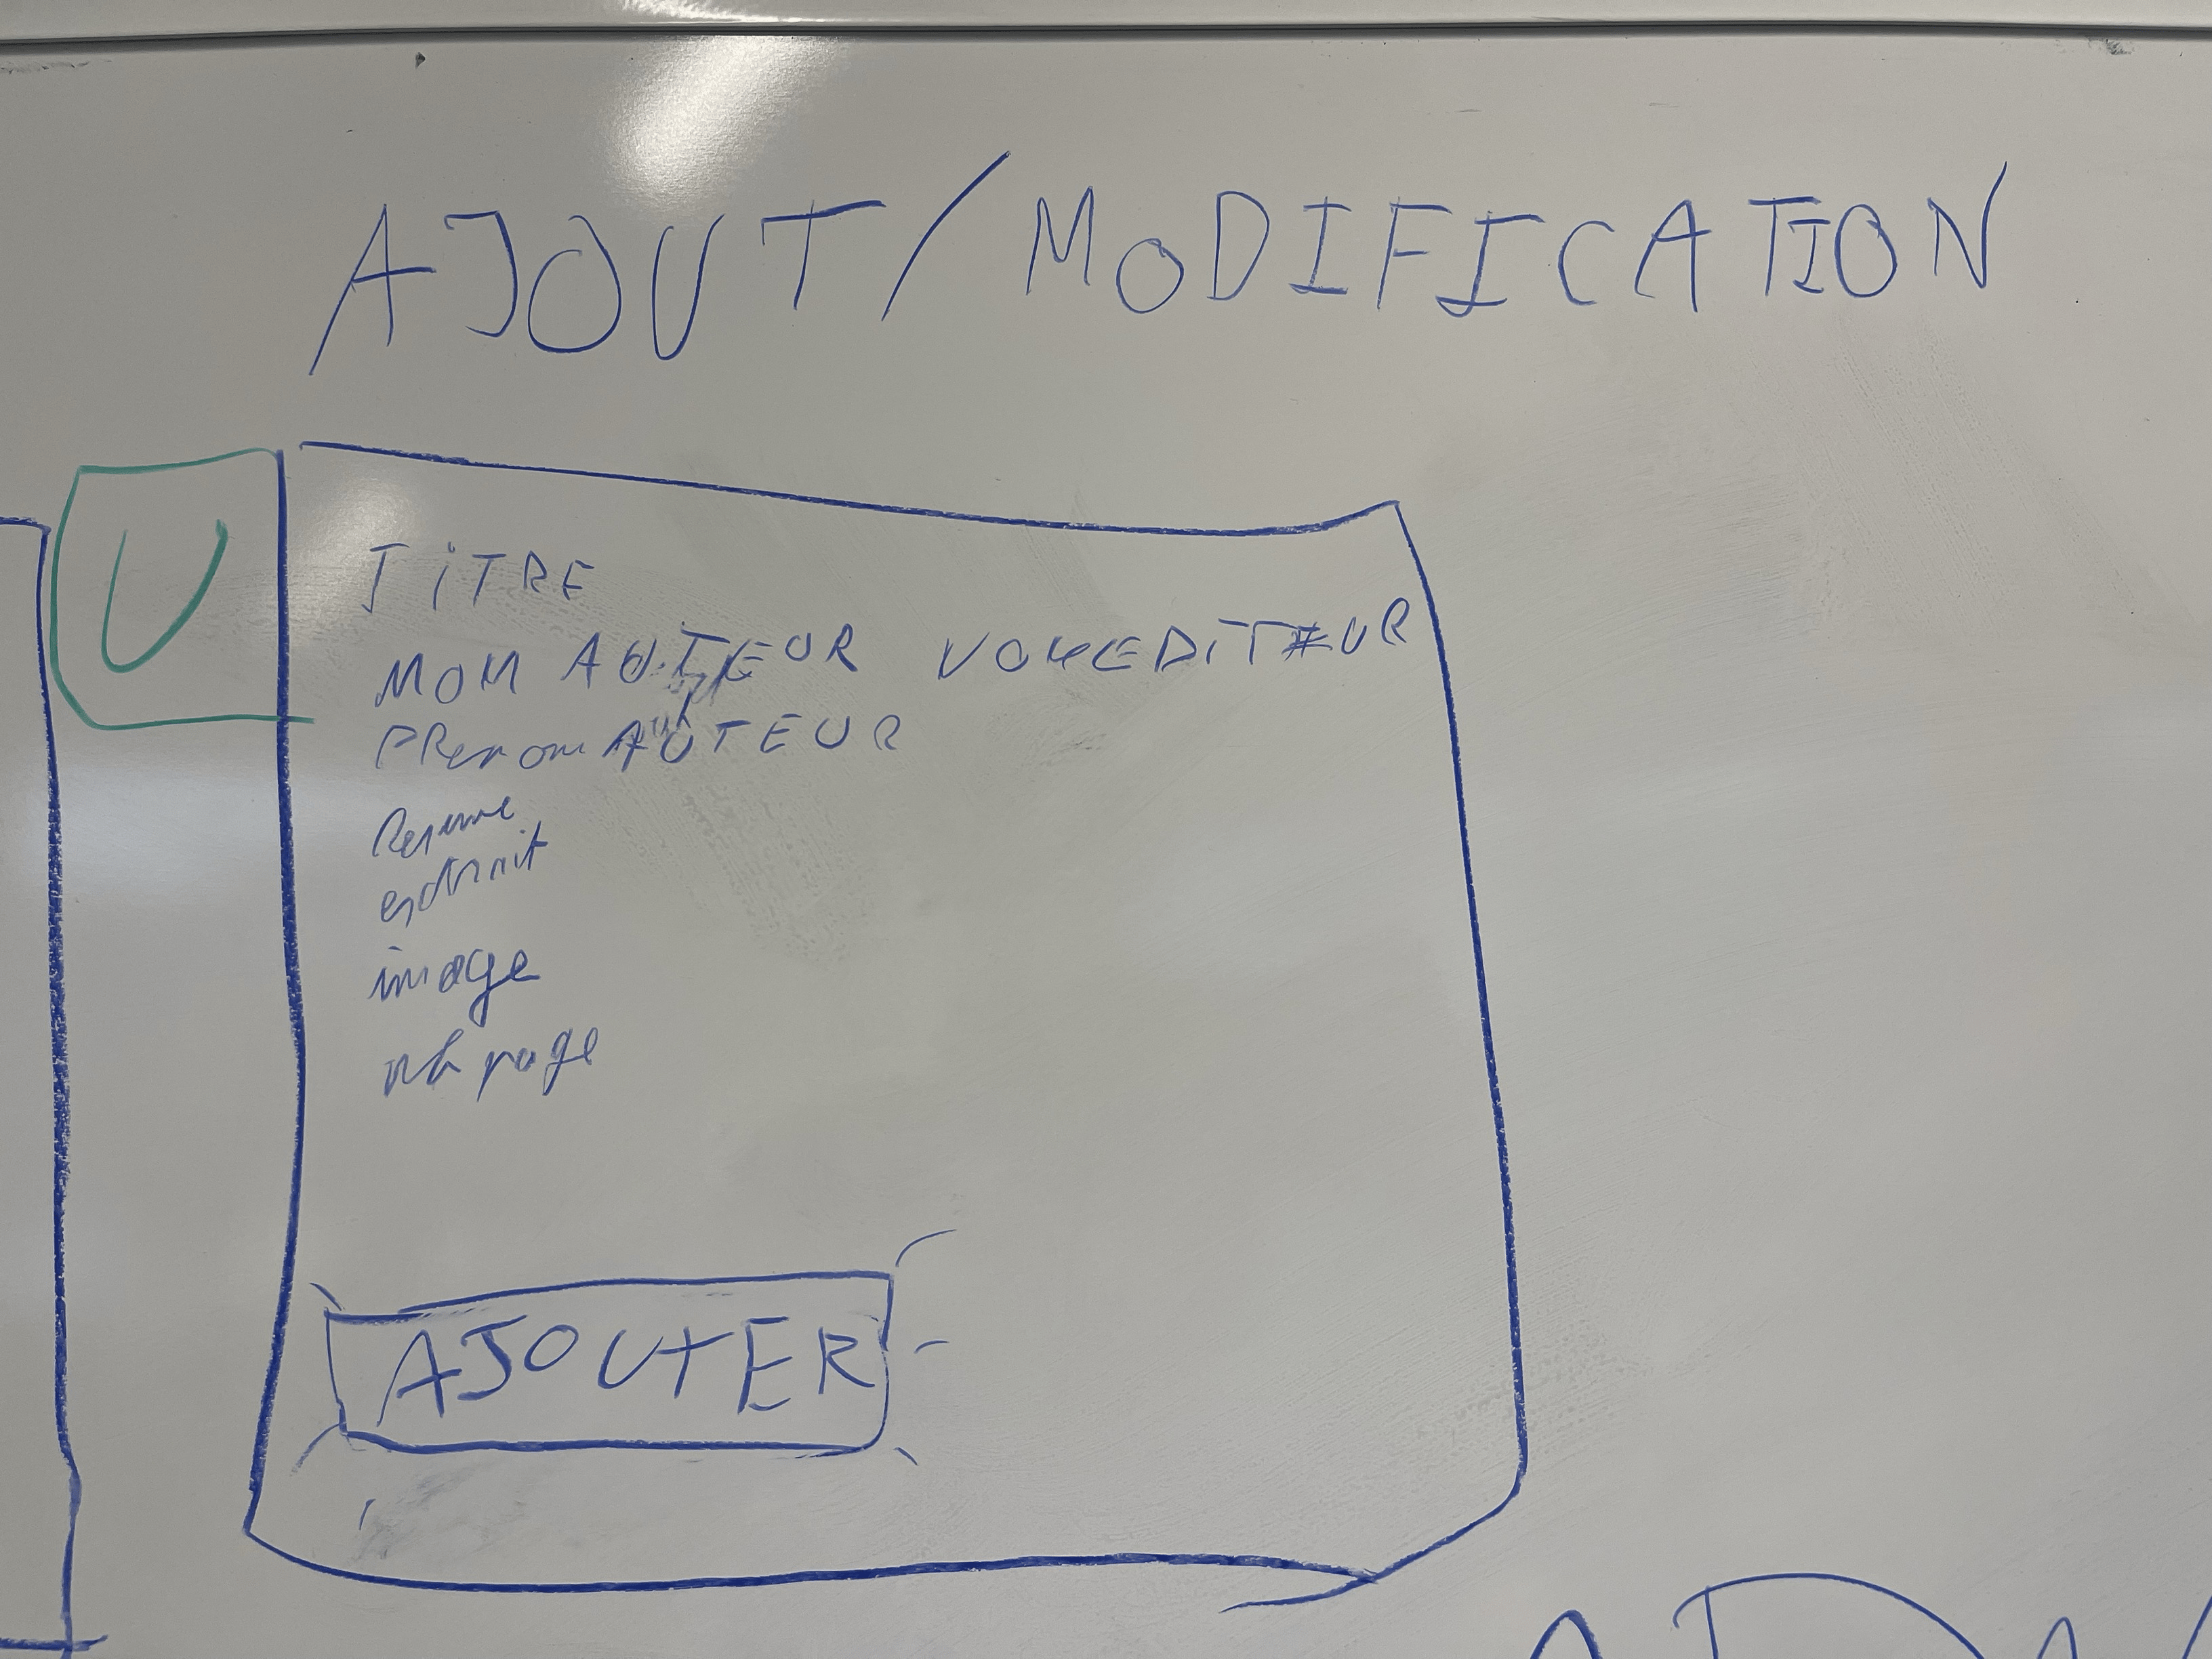 AJOUT/MODIFICATION
U
TiTRE
NOM AUTEUR NOM EDiTEUR
PRenom AUTEUR
Resume
extrait
image
nb page
AJOUTER